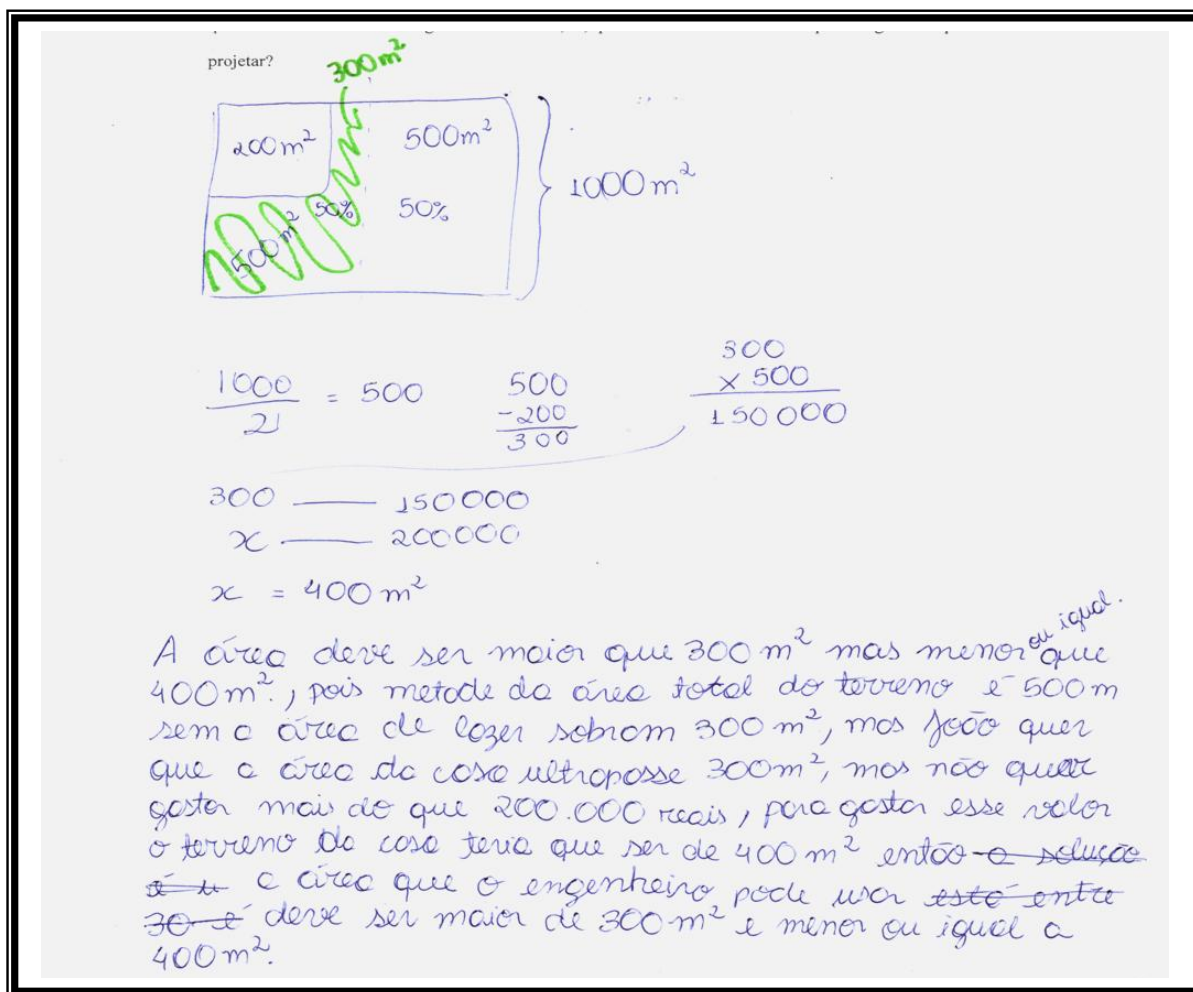 projetar?
300m²
200m²
500m²
1000m²
50%
50%
500m²
1000
2
= 500
500
-200
300
300
x 500
150000
300 —— 150000
x —— 200000
x = 400m²
A área deve ser maior que 300m² mas menor ou igual. que
400m²., pois metade da área total do terreno é 500m
sem a área de lazer sobram 300m², mas João quer
que a área da casa ultrapasse 300m², mas não quer
gastar mais do que 200.000 reais, para gastar esse valor
o terreno da casa teria que ser de 400m² então a solução
é u a área que o engenheiro pode usar está entre
30 e deve ser maior de 300m² e menor ou igual a
400m².